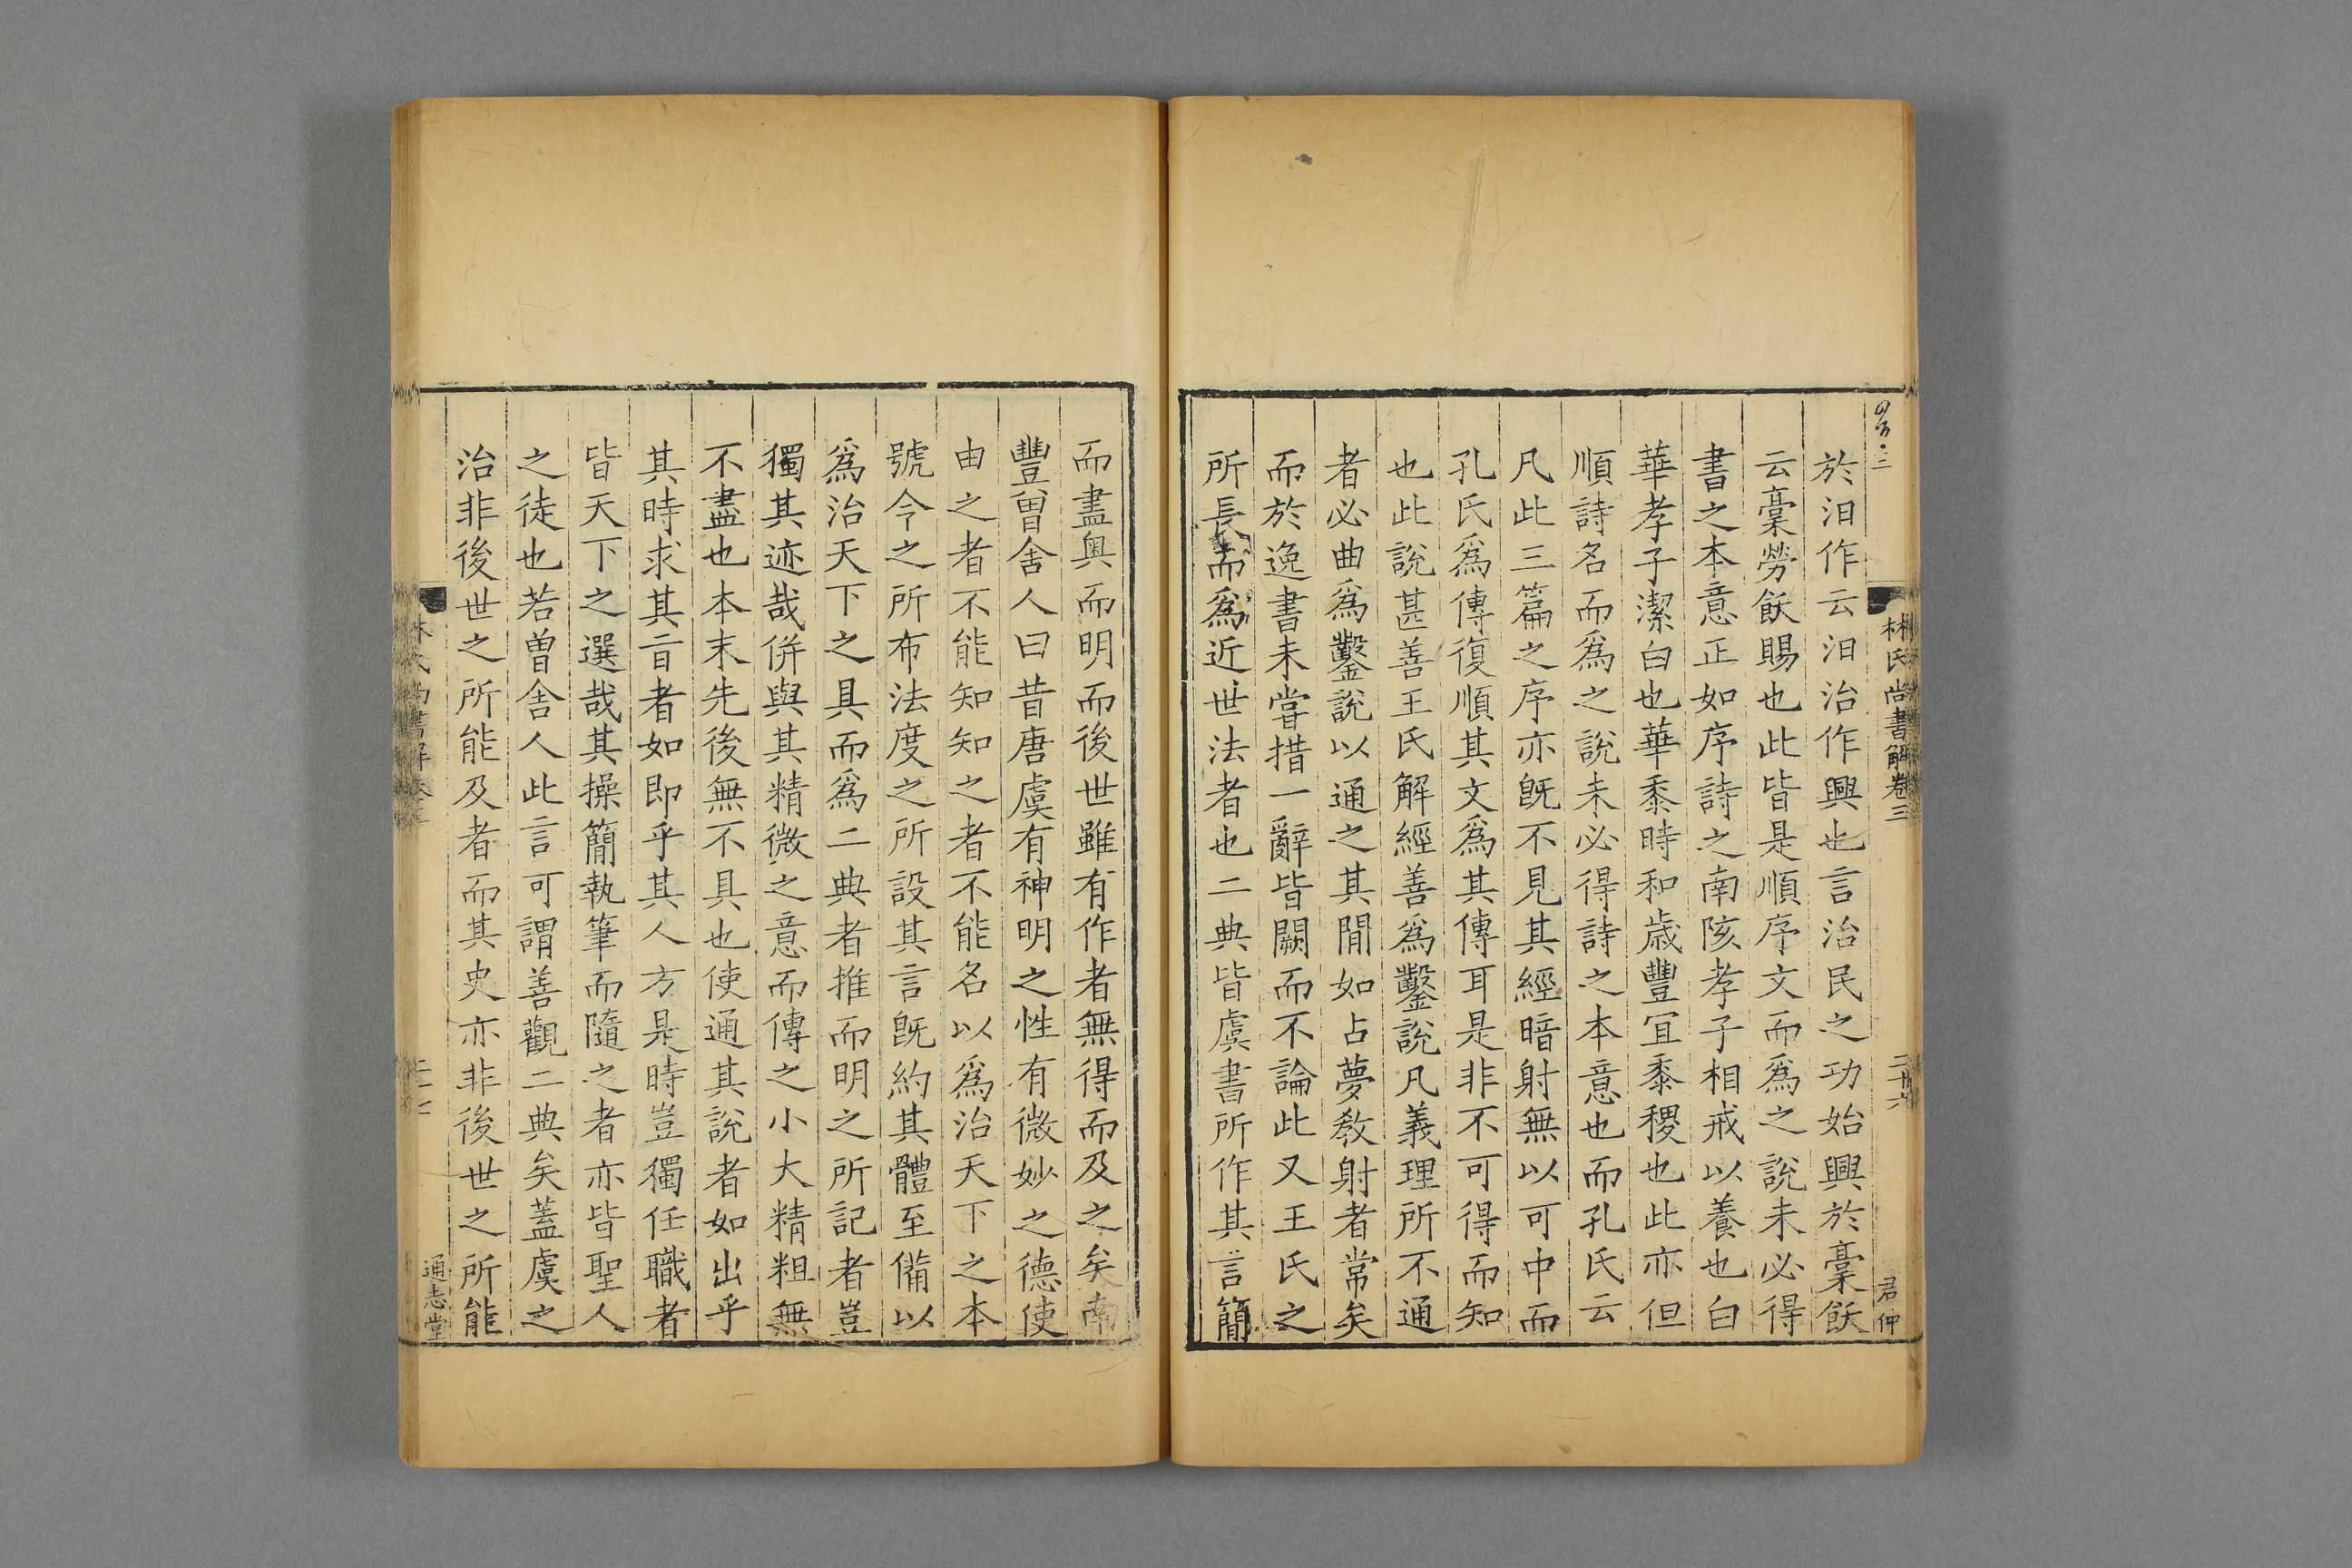 林氏尚書解卷三
二十六
君仲
於汩作云汩治作興也言治民之功始興於稾飫
云稾勞飫賜也此皆是順序文而爲之說未必得
書之本意正如序詩之南陔孝子相戒以養也白
華孝子潔白也華黍時和歲豐宜黍稷也此亦但
順詩名而爲之說未必得詩之本意也而孔氏云
凡此三篇之序亦既不見其經暗射無以可中而
孔氏爲傳復順其文爲其傳耳是非不可得而知
也此說甚善王氏解經善爲鑿說凡義理所不通
者必曲爲鑿說以通之其閒如占夢敎射者常矣
而於逸書未嘗措一辭皆闕而不論此又王氏之
所長而爲近世法者也二典皆虞書所作其言簡
而盡奥而明而後世雖有作者無得而及之矣南
豐曾舍人曰昔唐虞有神明之性有微妙之德使
由之者不能知知之者不能名以爲治天下之本
號令之所布法度之所設其言既約其體至備以
爲治天下之具而爲二典者推而明之所記者豈
獨其迹哉併與其精微之意而傳之小大精粗無
不盡也本末先後無不具也使通其說者如出乎
其時求其㫖者如即乎其人方是時豈獨任職者
皆天下之選哉其操簡執筆而隨之者亦皆聖人
之徒也若曾舍人此言可謂善觀二典矣蓋虞之
治非後世之所能及者而其史亦非後世之所能
通志堂